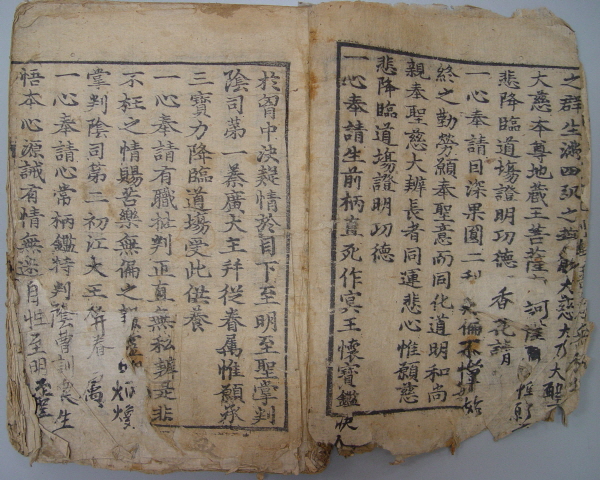 之群生滿四弘之 大慈大 大聖
大慈本尊地藏王菩薩 訶薩 惟願
悲降臨道場證明功德 香花請
一心奉請因深果圓二利 無偏不憚始
終之勤勞願奉聖意而同化道明和尚
親奉聖慈大辨長者同運悲心惟願慈
悲降臨道場證明功德
一心奉請生前柄直死作冥王懷寶鑑
於胷中決疑情於目下至明至聖掌判
陰司苐一秦廣大王幷從眷属惟願承
三寶力降臨道場受此供養
一心奉請有職批判正直無私辨是非
不枉之情賜苦樂無偏之
掌判陰司苐二初江大王幷眷属
一心奉請心常柄鑑特判陰曹訓衆生
悟本心源誡有情無迷自性至明至聖